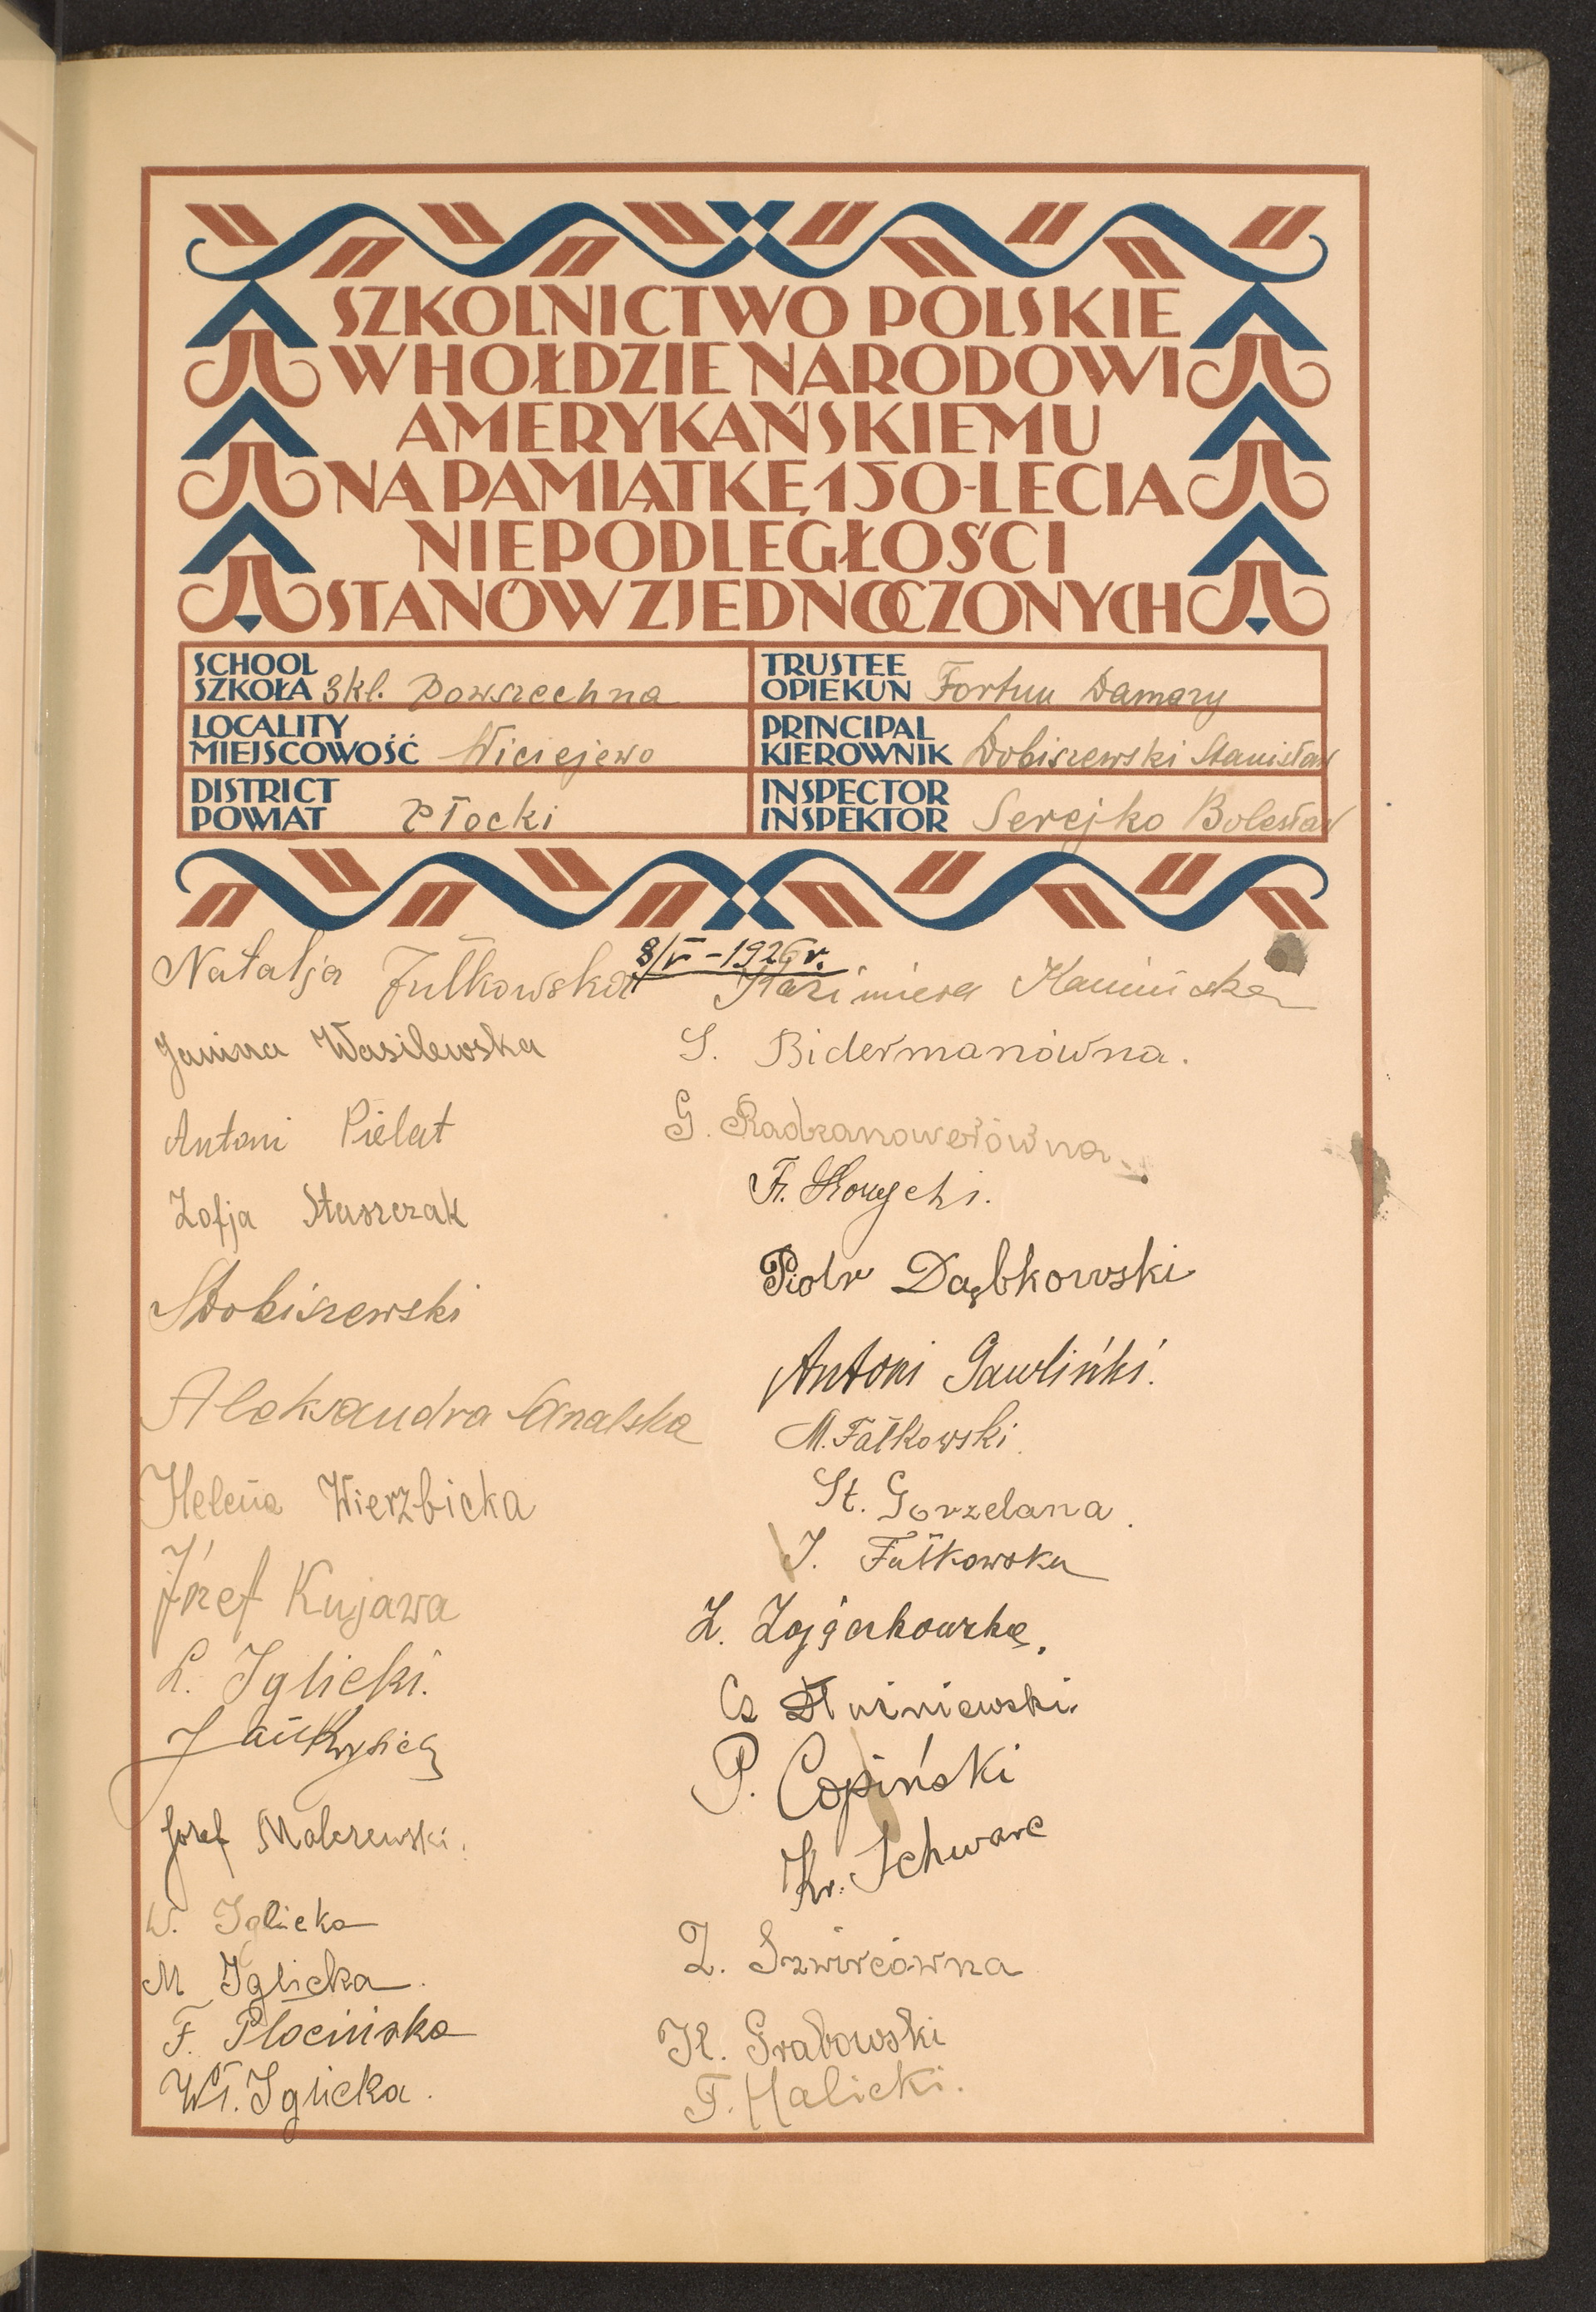 SZKOLNICTWO POLSKIE
W HOŁDZIE NARODOWI
AMERYKAŃSKIEMU
NA PAMIĄTKĘ 150-LECIA
NIEPODLEGŁOŚCI
STANÓW ZJEDNOCZONYCH
SCHOOL
SZKOŁA 3kl. Powszechna
LOCALITY
MIEJSCOWOŚĆ Wiciejewo
DISTRICT
POWIAT Płocki
TRUSTEE
OPIEKUN Damazy
PRINCIPAL
KIEROWNIK Dobiszewski Stanisław
INSPECTOR
INSPEKTOR Serejko Bolesław
8/V - 1926 r.
Natalja
Janina Wasilewska
Antoni Pielat
Zofja Staszczak
SDobiszewski
Aleksandra
Helena Wierzbicka
Józef Kujawa
L. Iglicki.
Jan
Józef Malczewski.
W. Iglicka
M Iglicka.
F. Płocińska
Wł. Iglicka.
Kazimiera Kamińska
S. Bidermanówna.
G.
Fr.
Piotr Dąbkowski
Antoni Gawliński.
M. Fałkowski.
St. Gorzelana.
J. Fałkowska
Z.
Cz Dłuźniewski.
P. Copiński
Kr. Schwarc
Z. Szwircówna
K. Grabowski
F. Halicki.